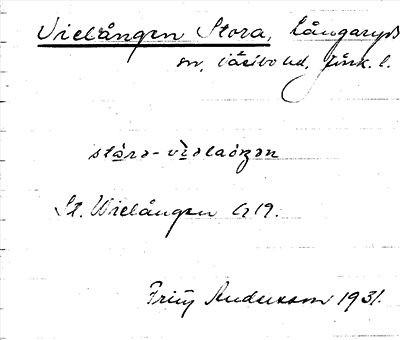 Vielången Stora, Långaryds
sn, Västbo hd, Jönk. l.
stóra-vìəlaóŋən
St. Wielången G 19.
Fritz Anderson 1931.